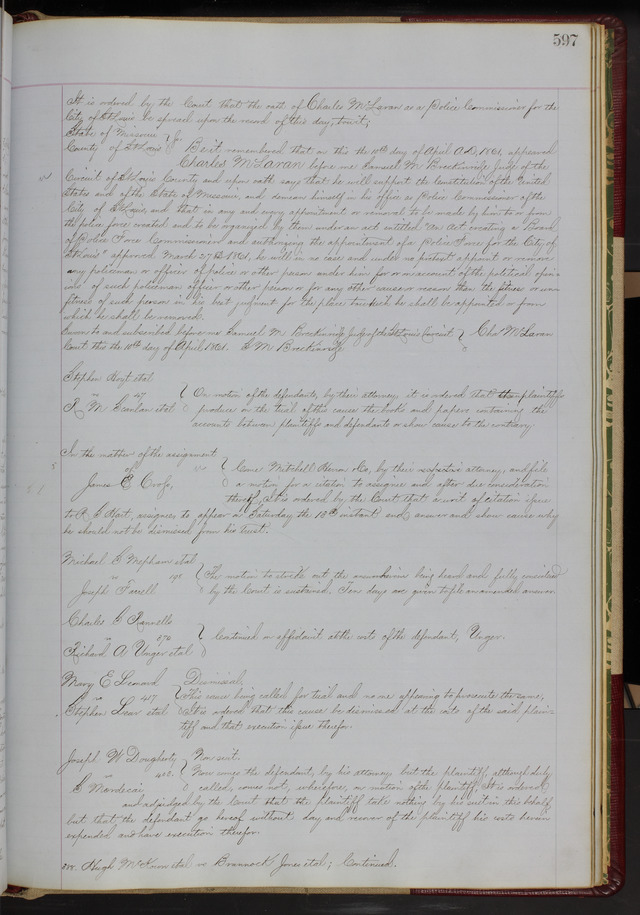 597
It is ordered by the Court that the oath of Charles McLaran as a Police Commissioner for the
City of St Louis be spread upon the record of this day, towit;
State of Missouri
County of St Louis } ss. Be it remembered that on this the 10th day of April A.D. 1861, appeared
Charles McLaran before me Samuel M Breckinridge Judge of the
Circuit of St Louis County, and upon oath says that he will support the Constitution of the United
States and of the State of Missouri, and demean himself in his office as Police Commissioner of the
City of St Louis, and that in any and every appointment or removal to be made by him to or from
the police force created and to be organized by them under an act entitled "An Act creating a Board
of Police Force Commissioners and authorizing the appointment of a Police Force for the City of
St Louis" approved March 27th 1861, he will in no case and under no pretext appoint or remove
any policeman or officer of police or other person under him for or on account of the political opin-
ions of such policeman officer or other person or for any other cause or reason than the fitness or un-
fitness of such person in his best judgment for the place to which he shall be appointed or from
which he shall be removed.
Sworn to and subscribed before me Samuel M Breckinridge Judge of the St Louis Circuit } Chas McLaran
Court this the 10th day of April 1861. S M Breckinridge
Stephen Hoyt et al
vs 47 } On motion of the defendants, by their attorney, it is ordered that the plaintiffs
R M Scanlan et al produce on the trial of this cause the books and papers containing the
accounts between plaintiffs and defendants or show cause to the contrary
In the matter of the assignment
of } Come Mitchell & Co, by their attorney, and file
James E Cross, a motion for a citation to assignee and after due consideration
thereof, it is ordered by the Court that a writ of citation issue
to A S Hart, assignee, to appear on Saturday the 13th instant and answer and show cause why
he should not be dismissed from his trust.
Michael G Mepham et al
vs } The motion to strike out the being heard and fully considered
Joseph Farrell by the Court is sustained. Ten days are given to file an amended answer.
Charles G Rannells
vs 870 } Continued on affidavit at the costs of the defendant, Unger.
Richard A Unger et al
Mary E Leonard Dismissal,
vs 417 } This cause being called for trial and no one appearing to prosecute the same,
Stephen et al it is ordered that this cause be dismissed at the costs of the said plain-
tiff and that execution issue therefor.
Joseph W Dougherty Non suit.
vs } Now comes the defendant, by his attorney, but the plaintiff, although duly
S Mordecai, called, comes not, wherefore, on motion of the plaintiff, it is ordered
and adjudged by the Court that the plaintiff take nothing by his suit in this behalf,
but that the defendant go hereof without day and recover of the plaintiff his costs herein
expended and have execution therefor.
Hugh McKown et al vs Brannock Jones et al; Continued.